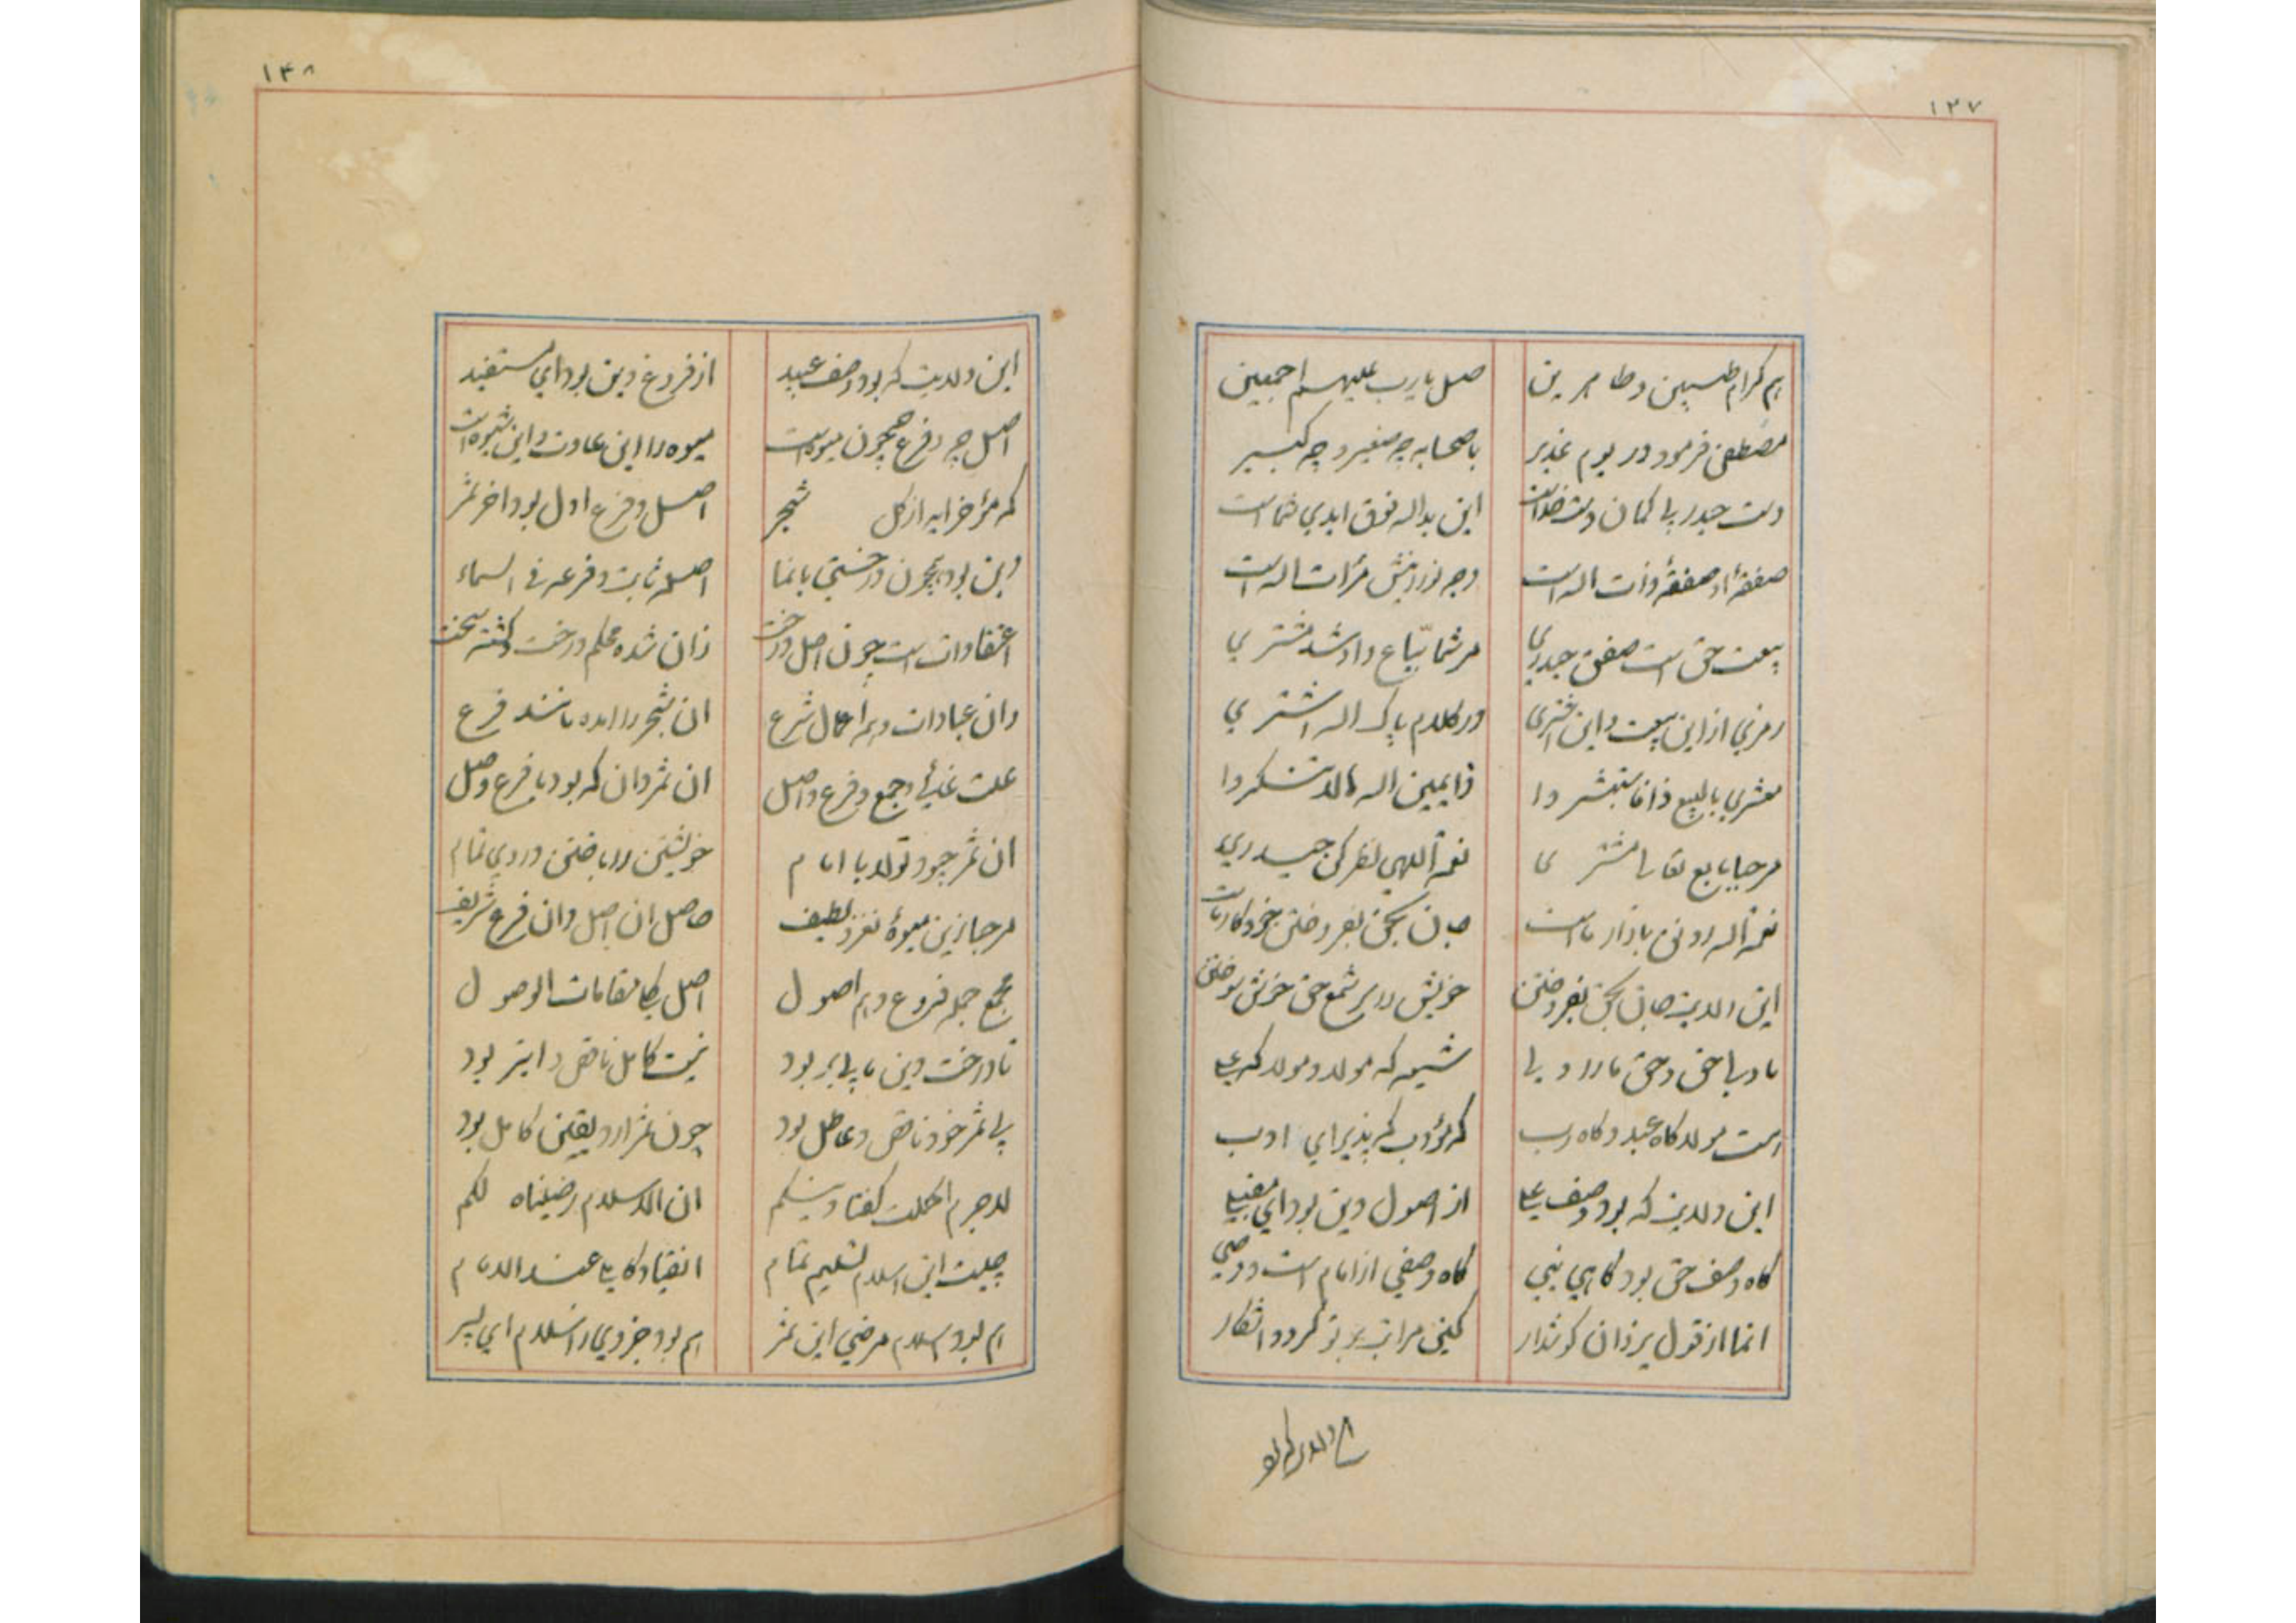 ۱۲۷
هم کرام طیبین و طاهرین
صل یا رب علیهم اجمعین
مصطفی فرمود در یوم غدیر
با صحابه چه صغیر و چه کبیر
دست حیدر بی کمان دست خداست
این ید اله فوق ایدی شماست
صفقهٔ او صفقهٔ ذات اله است
وجه نورانیش مرآت اله است
بیعت حق است صفقت حیدری
مر شما بیاع و او شد مشتری
رمزی از این بیعت و این اشتری
در کلام پاک اله اشتری
معشری بالبیع ذا فاستبشروا
ذا یمین اله الا تشکروا
مرحبا یا بیع نعم المشتری
نعمة اللهی نظر کن حیدری
نعمة اله رونق بازار ماست
جان بحق بفروختن خود کار ماست
این ولایت جان بحق بفروختن
خویش را بر شمع حق خوش سوختن
ما ولی حق و حق ما را ولی
شیعه که مولا و مولا که علی
است مولا گاه عبد و گاه رب
که مؤدب که پذیرای ادب
این ولایت که بود وصف علی
از اصول دین بود ای مقبلی
گاه وصف حق بود گاهی نبی
گاه وصفی از امام است و وصی
انما از قول یزدان گوش دار
کین مراتب بر تو گردد اشکار
این ولایت که بو
۱۴۸
این ولایت که بود وصف عبید
از فروع دین بود ای مستفید
اصل چه و فرع همچون میوه است
میوه را این عادت و این شیوه است
که مؤخر اید از کل شجر
اصل و فرع اول بود اخر ثمر
دین بود همچون درختی با نما
اصله ثابت و فرعه فی السماء
اعتقاد است چون اصل درخت
زان شده محکم درخت و گشته سخت
وان عبادات و همه اعمال شرع
ان شجر را امده مانند فرع
علت غائی و جمع فرع و اصل
ان ثمر دان که بود با فرع وصل
ان ثمر چبود تولا با امام
خویشتن را باختن در وی تمام
مرحبا زین میوهٔ نغز و لطیف
حاصل ان اصل و ان فرع شریف
مجمع جمله فروع و هم اصول
اصل کل مقامات الوصول
تا درخت دین ما بی بر بود
نیست کامل ناقص و ابتر بود
بی ثمر خود ناقص و عاطل بود
چون ثمر ارد یقین کامل بود
لاجرم اکملت گفتا دینکم
ان الاسلام رضیناه لکم
چیست این اسلام تسلیم تمام
انقیاد کاملی عند الامام
هم بود اسلام مرضی این ثمر
هم بود جزوی ز اسلام ای پسر